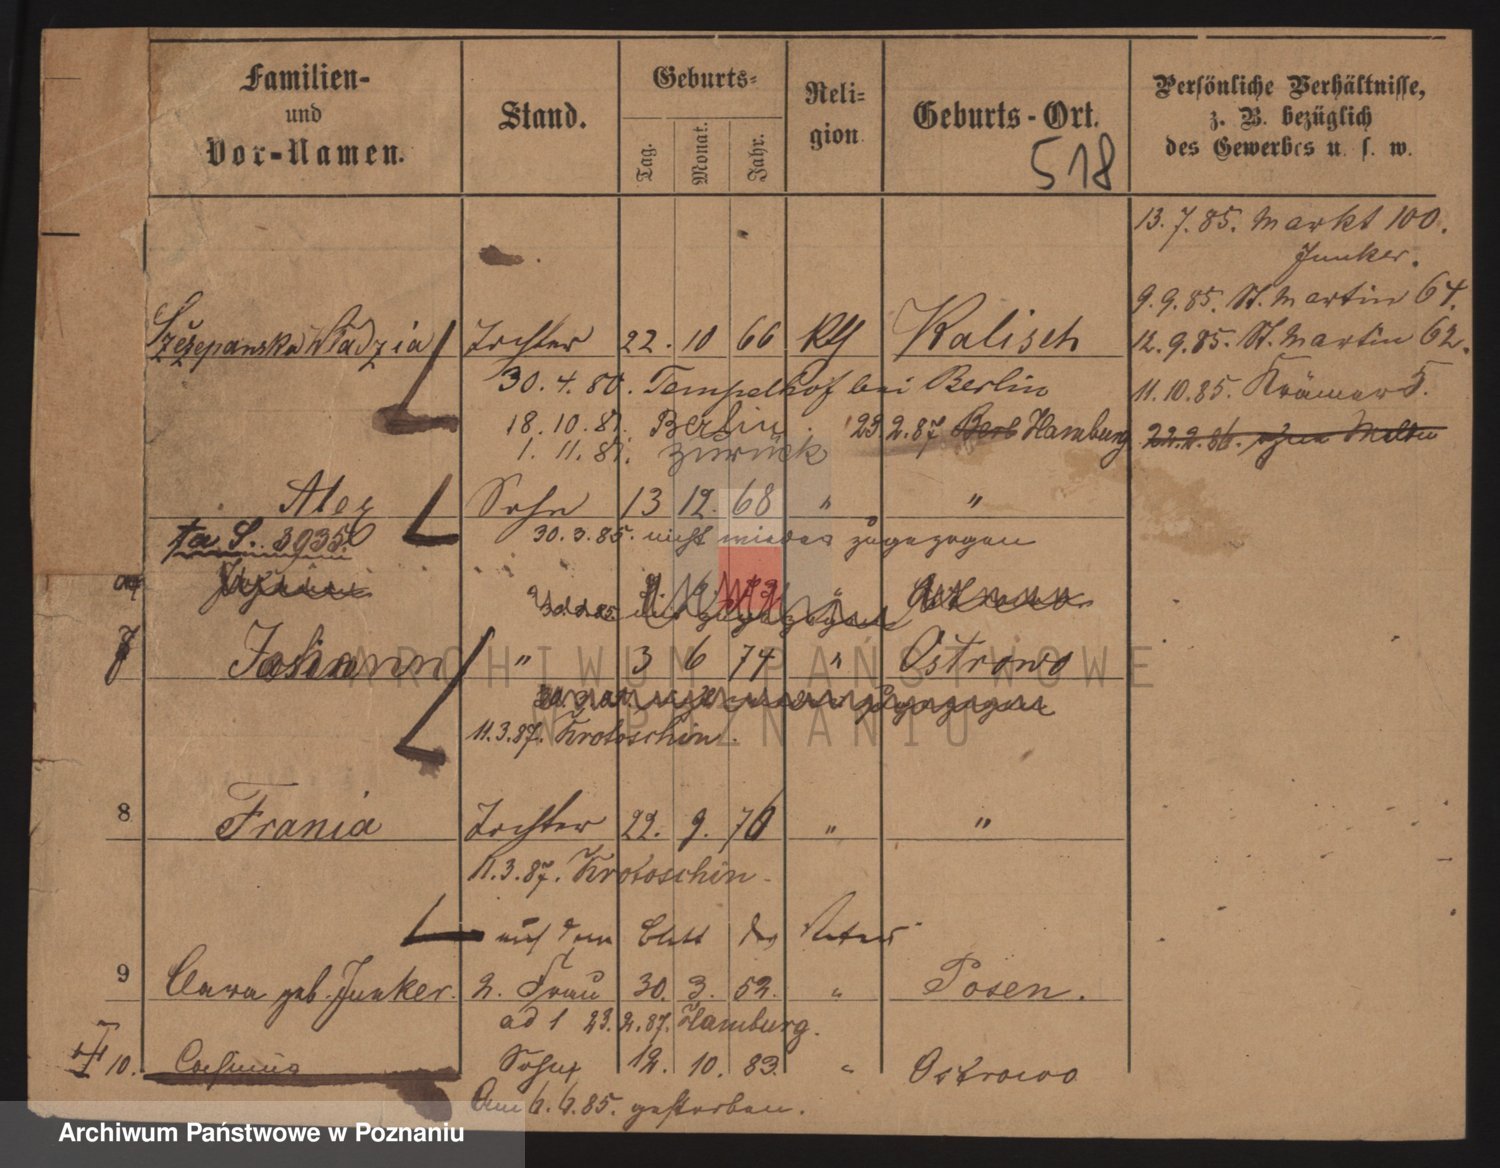 Familien-
und
Vor-Namen.
Stand.
Geburts-
Tag.
Monat.
Jahr.
Reli-
gion
Geburts-Ort.
518
Persönliche Verhältnisse,
z. B. bezüglich
des Gewerbes u. s. w.
13.7.85. Markt 100.
Junker.
9.9.85. St. Martin 64.
Szczepanska Wladzia Tochter 22. 10 66 Kth Kalisch
12.9.85. St. Martin 62.
30.4.80. Tempelhof bei Berlin
11.10.85. Krämer 5.
18.10.81. Berlin. 23.2.87 Berl Hamburg
22.2.86.
1.11.81. zurück
Alex Sohn 13 12. 68 " "
ta S. 3935
30.3.85. nicht wieder zugezogen
7 Johann " 3 6 74 " Ostrowo
11.3.87. Krotoschin.
8 Frania Tochter 22. 9. 76 " "
11.3.87. Krotoschin.
auf dem Blatt des Vaters
9 Clara geb. Junker. 2. Frau 30. 3. 52. " Posen.
ad 1 23.2.87. Hamburg.
10. Sohn 12. 10. 83. " Ostrowo
Am 6.6.85. gestorben.
ARCHIWUM PAŃSTWOWE
W POZNANIU
Archiwum Państwowe w Poznaniu